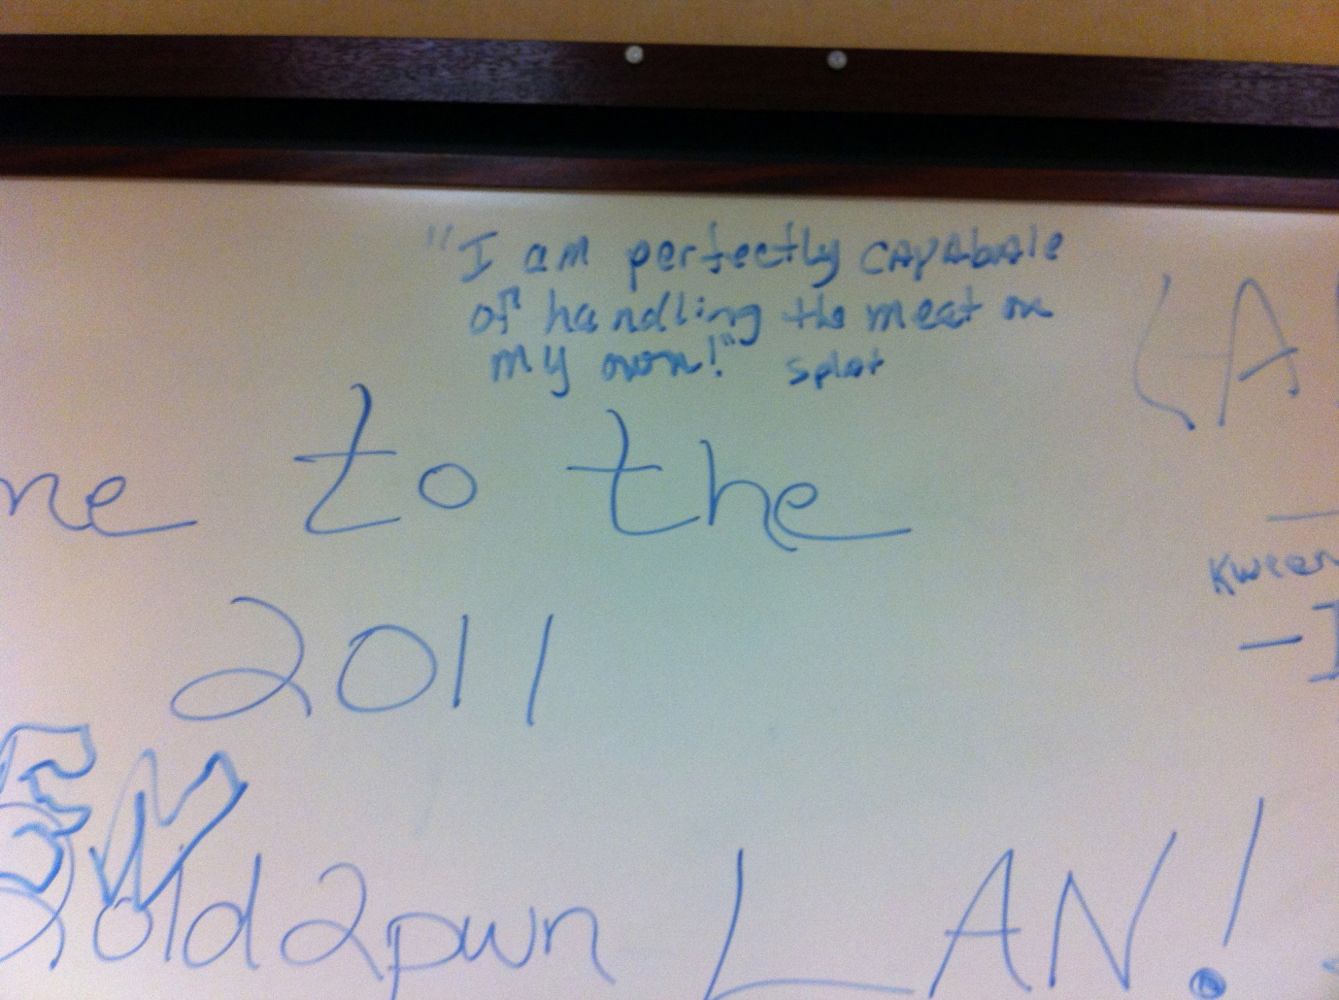 "I am perfectly capabale
of handling the meat on
my own!" splat
LA
ne to the
Kween
2011
old2pwn LAN!